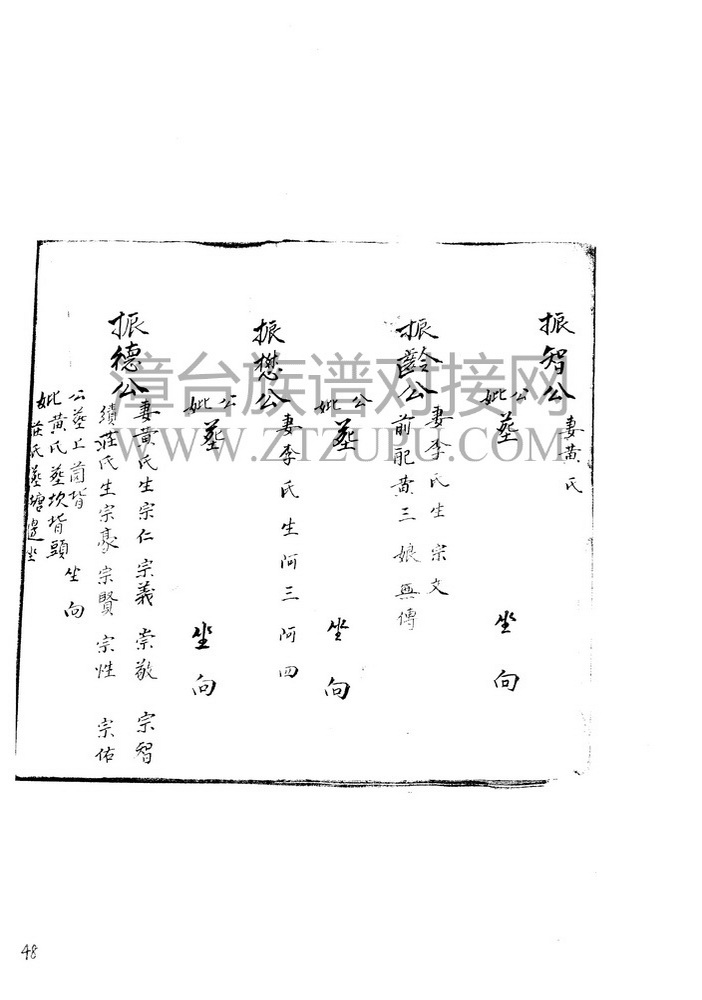 振智公
妻黃氏
公
妣
墓 坐 向
振齡公
妻李氏生 宗文
前配黄三娘 無傳
公
妣
墓 坐 向
振懋公
妻李氏生阿三 阿四
公
妣
墓 坐 向
振德公
妻黃氏生宗仁 宗義 崇敬 宗智
續莊氏生宗豪 宗賢 宗性 宗佑
公墓上崗揹 坐 向
妣黃氏墓坎揹頭
莊氏墓塘邊坐
漳台族谱对接网
WWW.ZTZUPU.COM
48